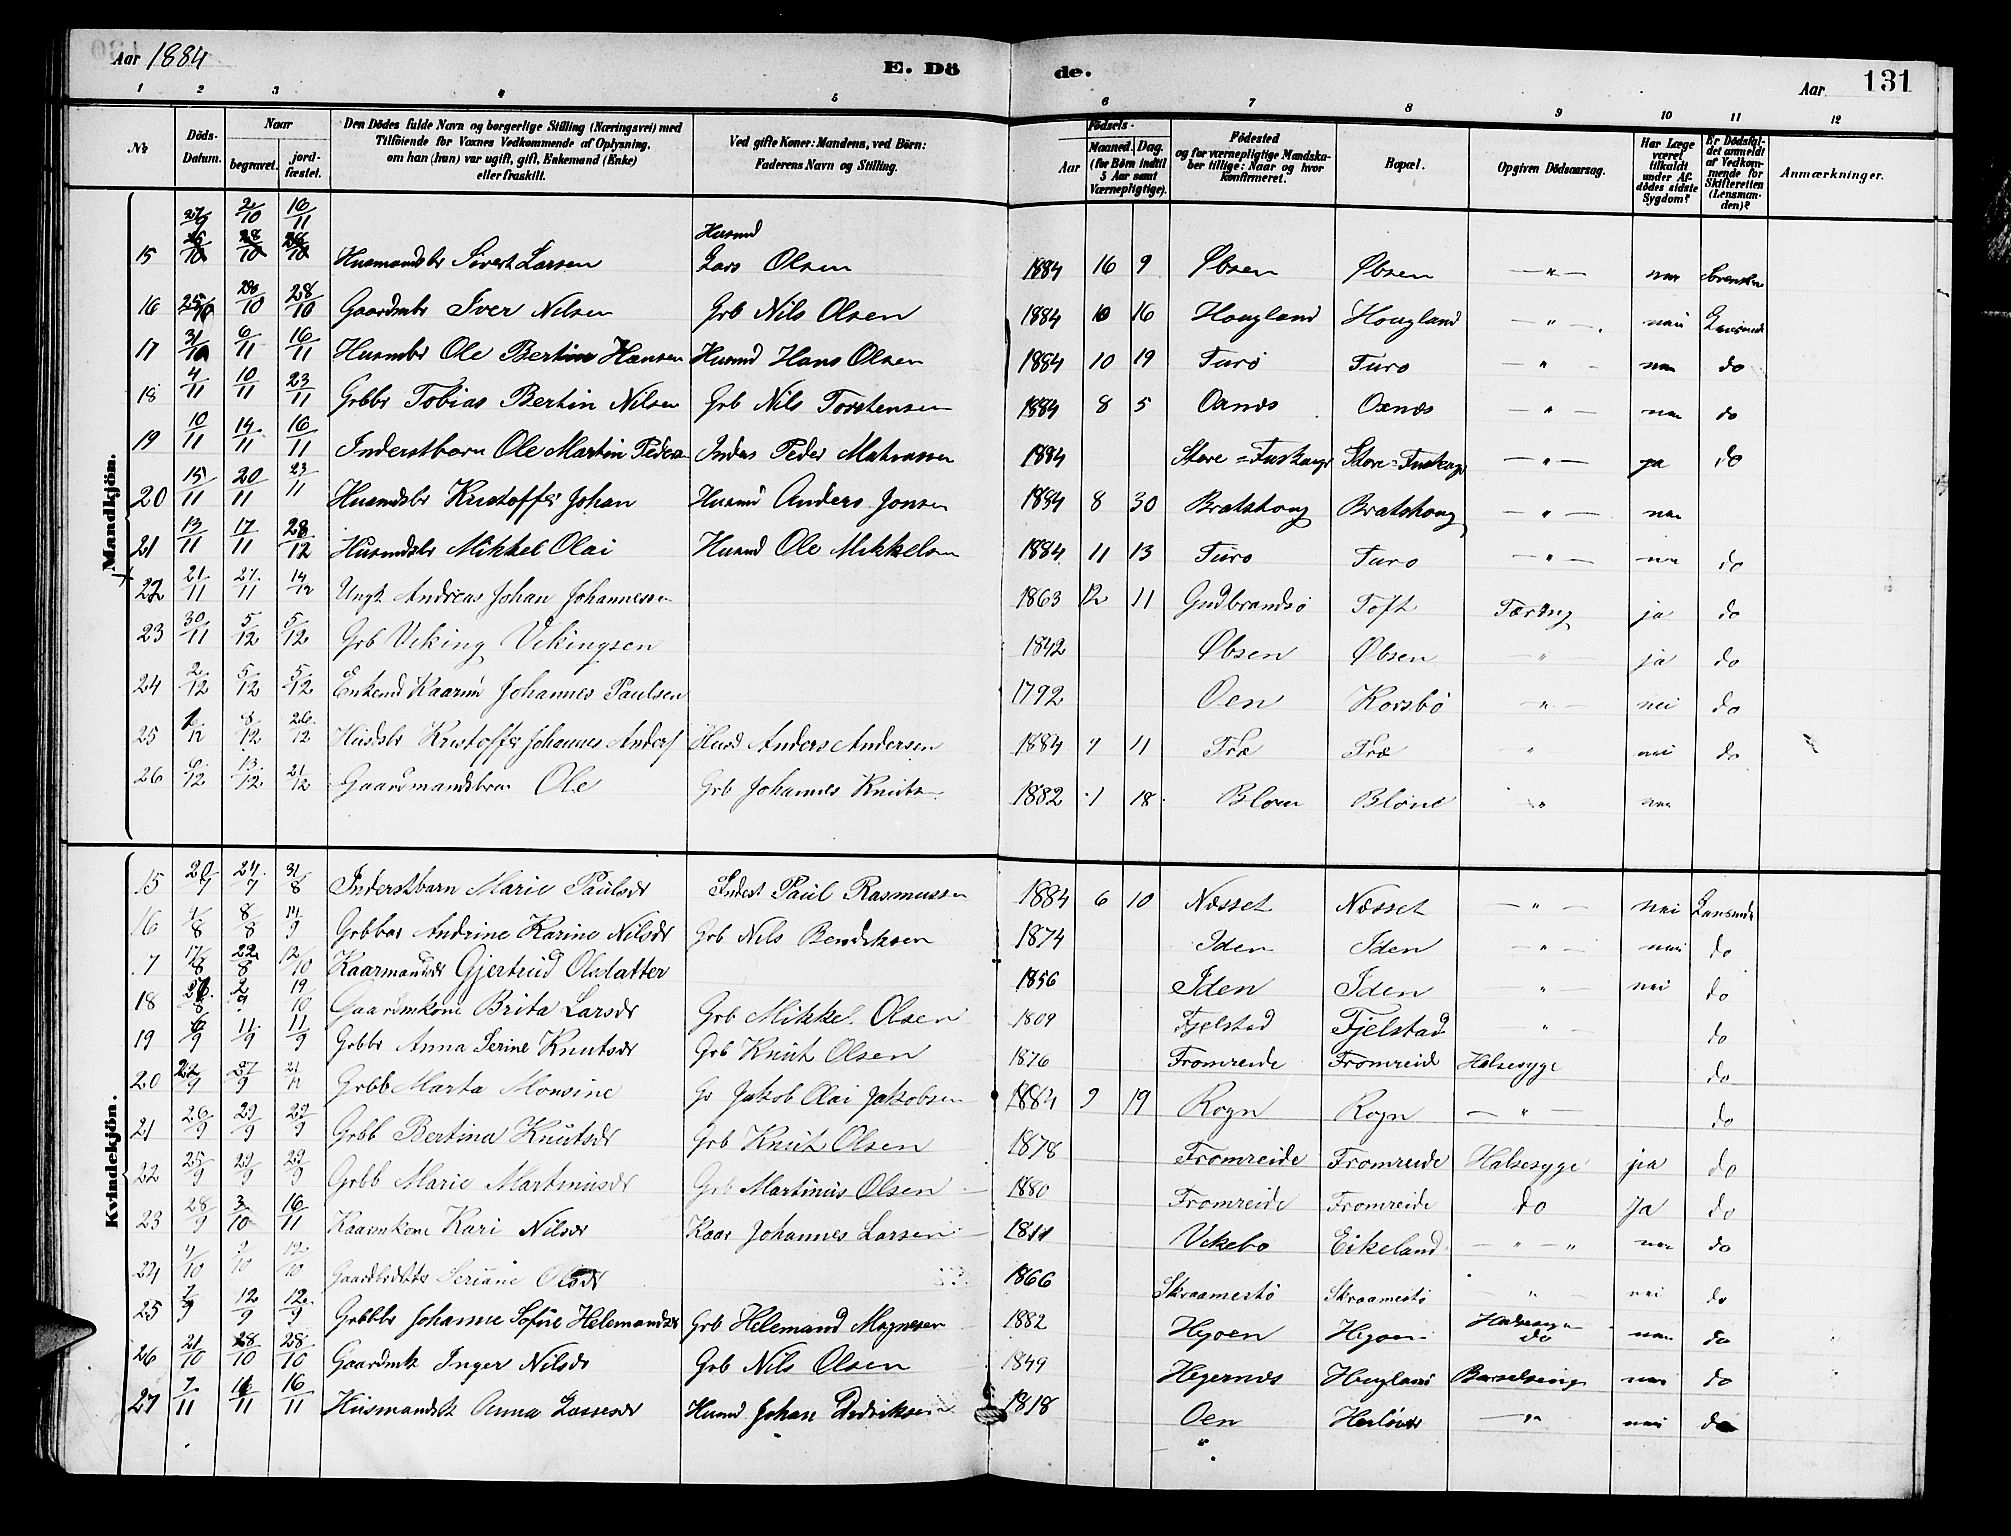 Aar 1884
E. Dö
de.
Aar
131
1 2 3 4 5 6 7 8 9 10 11 12
No
Döds-Datum.
Naar
begravet.
jordfæstet.
Den Dödes fulde Navn og borgerlige Stilling (Næringsvei) med
Tilföiende for Voxnes Vedkommende af Oplysning,
om han (hun) var ugift, gift, Enkemand (Enke)
eller fraskilt.
Ved gifte Koner: Mandens, ved Börn:
Faderens Navn og Stilling.
Födsels-
Aar
Maaned. Dag.
(for Börn indtil
5 Aar samt
Værnepligtige).
Födested
og for værnepligtige Mandska-
ber tillige: Naar og hvor
konfirmeret.
Bopæl.
Opgiven Dödsaarsag.
Har Læge
været
tilkaldt
under Af-
dödes sidste
Sygdom?
Er Dödsfal-
det anmeldt
af Vedkom-
mende for
Skifteretten
(Lensman-
den)?
Anmærkninger.
Mandkjön.
27/9 2/10 16/11 Husmd
15 Husmandsbr Sivert Larsen Lars Olsen 1884 16 9 Øbsen Øbsen -"-
16 25/10 28/10 28/10 Gaardmbr Iver Nilsen Grb Nils Olsen 1884 10 16 Hougland Hougland -"- nei Lensmd
17 31/10 6/11 16/11 Husmbr Ole Bertin Hansen Husmd Hans Olsen 1884 10 19 Turö Turo " nei do
18 4/11 10/11 23/11 Grbbr Tobias Bertin Nilsen Grb Nils Torstensen 1884 8 5 Oxnes Oxnes -"- nei do
19 10/11 14/11 16/11 Inderstbarn Ole Martin Peders Inders Peder 1884 -"- ja do
20 15/11 20/11 23/11 Husmdsbr Kristoffer Johan Husmd Anders Jonsen 1884 8 30 Bratshoug Bratshoug -"- nei
21 13/11 17/11 28/12 Husmdsbr Mikkel Olai Husmd Ole Mikkelsen 1884 11 13 Turo Turo -"- nei do
22 21/11 27/11 14/12 Ungk Andreas Johan Johannessen 1863 12 11 Gudbrandsö Toft Tæring ja do
23 30/11 5/12 5/12 Grb Viking Vikingsen 1842 Øbsen Øbsen -"- ja do
24 2/12 5/12 5/12 Enkemd Kaarm Johannes Paulsen 1792 Oen Korsbö -"- nei do
25 8/12 26/12 Husdsbr Kristoffer Johannes Anders Husd Anders Andersen 1884 11 Træ Træ " nei do
26 13/12 21/12 Gaardmandsbarn Ole Grb Johannes Knuts 1882 1 18 Blom Blom " nei
Kvindekjön.
15 20/7 24/7 31/8 Inderstbarn Marie Paulsdr Inderst Paul Rasmussen 1884 6 10 Næsset Næsset -"- nei Lensmd
16 4/8 8/8 14/9 Grbbar Andrine Karine Nilsdr Grb Nils Bendiksen 1874 Iden Iden -"- nei do
.7 17/8 22/8 12/10 Kaarmandsdr Gjertrud Olsdatter 1856 Iden Iden -"- nei do
18 2/9 19/10 Gaardmkone Brita Larsdr Grb Mikkel Olsen 1809 Fjelstad Fjelstad -"- do
19 11/9 11/9 Grbbr Anna Serine Knutsdr Grb Knut Olsen 1876 Fromreide Fromreide Halsesyge do
20 27/9 Grbb Marta Monsine Gr Jakob Olai Jakobsen 1884 9 19 Rogn Rogn -"- do
21 26/9 29/9 29/9 Grbb Bertina Knutsdr Grb Knut Olsen 1878 Fromreide Fromreide Halsesyge ja do
22 25/9 29/9 29/9 Grbb Marie Martinusdr Grb Martinus Olsen 1880 Fromreide Fromreide do Ja do
23 28/9 3/10 16/11 Kaarmkone Kari Nilsdr Kaar Johannes Larsen 1811 Vikebo Eikeland -"-" nei do
24 4/10 9/10 12/10 Gaardbrdatter Seriane Olsdr 1866 Skraamestö Skraamestö -"- nei do
25 7/9 12/9 12/9 Grbbbr Johanne Sofie Helemandsdr Grb Helemand Magnesen 1882 Hejoen Hejoen Halsesyge do nei do
26 21/10 28/10 28/10 Gaardmk Inger Nilsdr Grb Nils Olsen 1849 Hegernes Hougland Barselseng nei do
27 7/11 11/11 16/11 Husmandsk Anna Lassesdr Husmd Johan Didriksen 1818 Oen -"- nei do